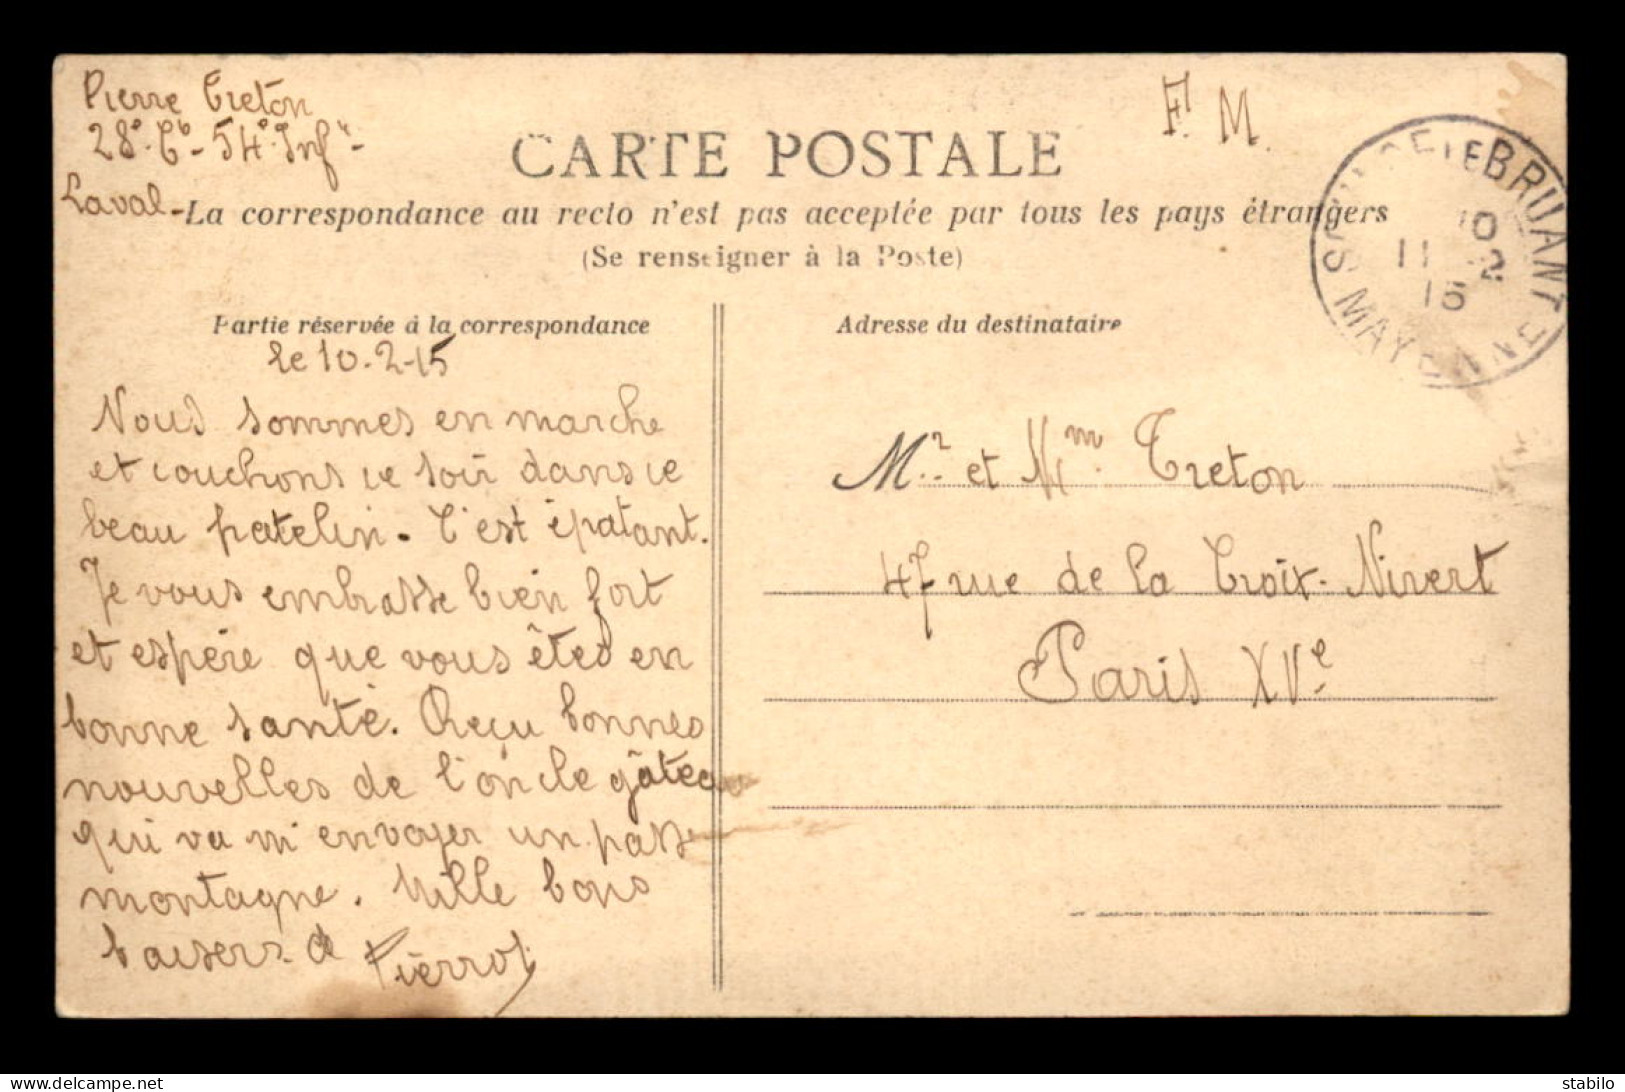 Pierre Treton
28e. Cie - 54e. Infie -
Laval -
F. M.
CARTE POSTALE
La correspondance au recto n'est pas acceptée par tous les pays étrangers
(Se renseigner à la Poste)
BRUANT
10
11 -2
15
MAYENNE
Partie réservée à la correspondance
Adresse du destinataire
le 10-2-15
Nous sommes en marche
et couchons ce soir dans ce
beau patelin - C'est épatant.
Je vous embrasse bien fort
et espère que vous êtes en
bonne santé. Reçu bonnes
nouvelles de l'oncle gâteau
qui va m'envoyer un passe
montagne. Mille bons
baisers de Pierrot
Mr. et Mm. Treton
47 rue de la Croix-Nivert
Paris XVe
stabilo